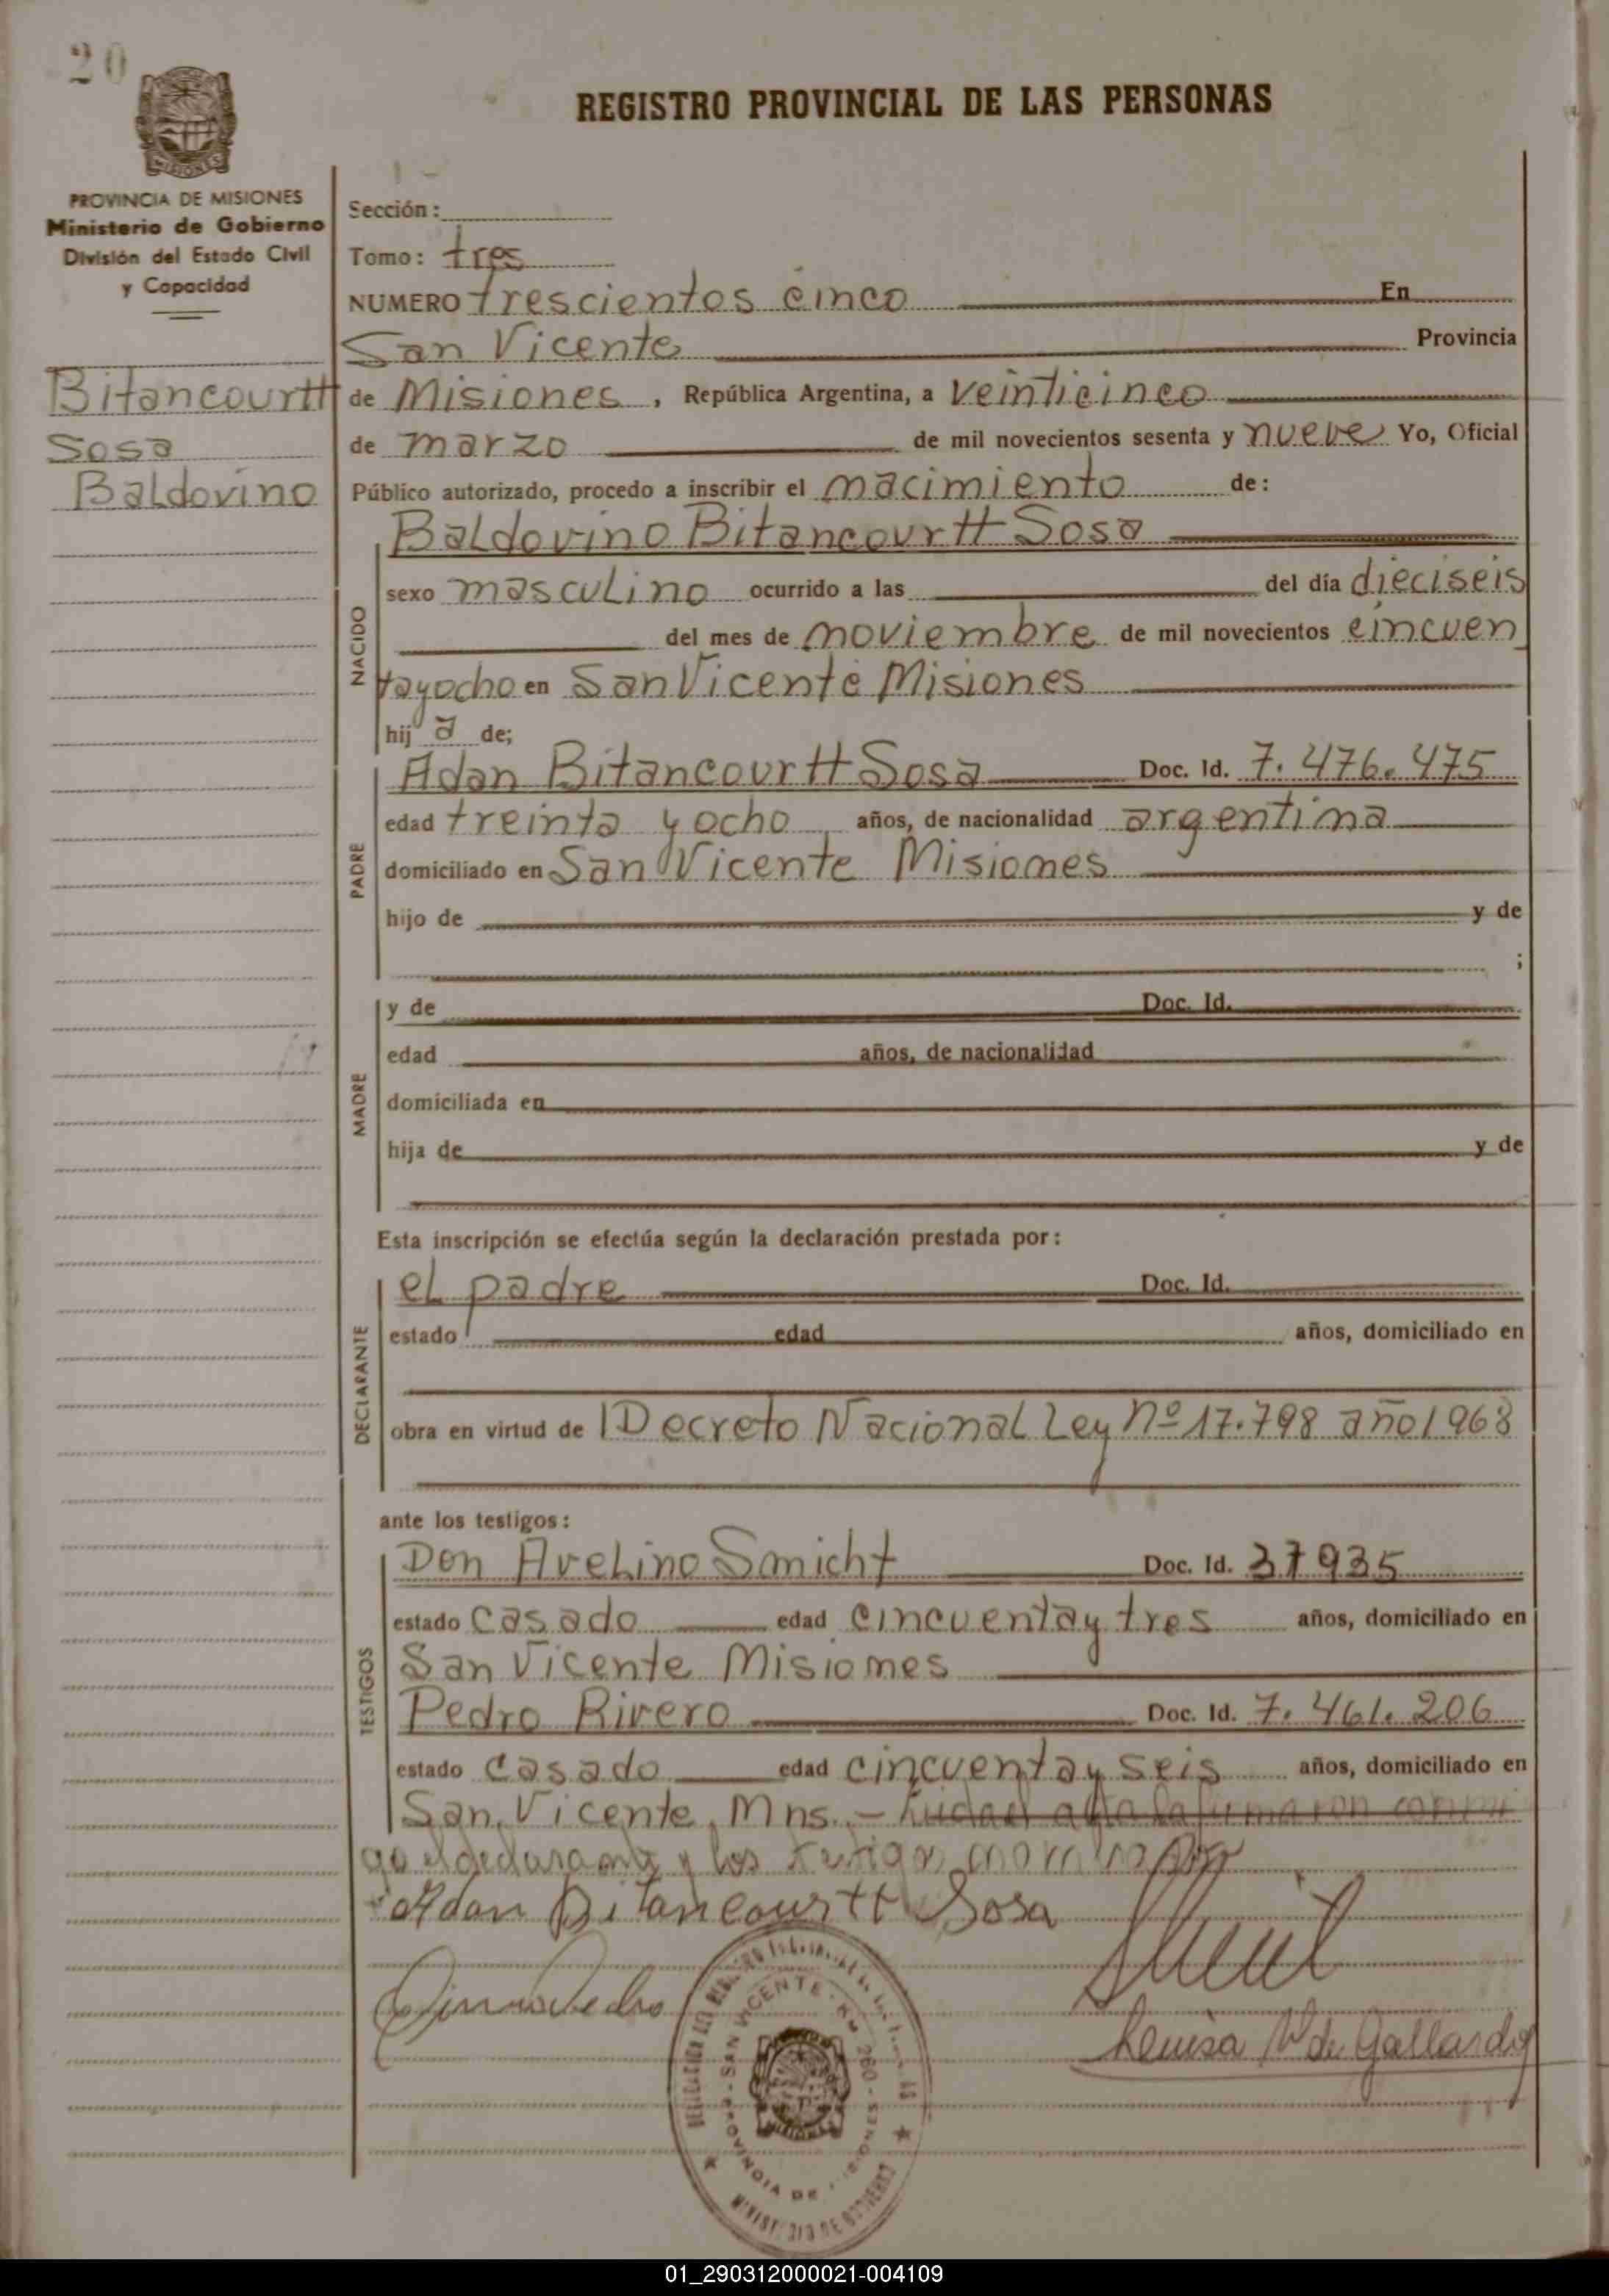 20
REGISTRO PROVINCIAL DE LAS PERSONAS
MISIONES
PROVINCIA DE MISIONES
Ministerio de Gobierno
División del Estado Civil
y Capacidad
Bitancourtt
Sosa
Baldovino
1-
Sección:
Tomo: tres
NUMERO trescientos cinco En
San Vicente Provincia
de Misiones, República Argentina, a veinticinco
de marzo de mil novecientos sesenta y nueve Yo, Oficial
Público autorizado, procedo a inscribir el nacimiento de:
NACIDO
Baldovino Bitancourtt Sosa
sexo masculino ocurrido a las del día dieciseis
del mes de noviembre de mil novecientos cincuen
tayocho en San Vicente Misiones
hij o de;
PADRE
Adan Bitancourtt Sosa Doc. Id. 7.476.475
edad treinta y ocho años, de nacionalidad argentina
domiciliado en San Vicente Misiones
hijo de y de
;
MADRE
y de Doc. Id.
edad años, de nacionalidad
domiciliada en
hija de y de
Esta inscripción se efectúa según la declaración prestada por:
DECLARANTE
el padre Doc. Id.
estado edad años, domiciliado en
obra en virtud de Decreto Nacional Ley Nº 17.798 año 1968
ante los testigos:
TESTIGOS
Don Avelino Smicht Doc. Id. 37935
estado casado edad cincuentay tres años, domiciliado en
San Vicente Misiones
Pedro Rivero Doc. Id. 7.461.206
estado casado edad cincuentay seis años, domiciliado en
San Vicente, Mns. - acta la firman con conmi
go el declarante y los testigos nombrados
Adan Bitancourtt Sosa
Pedro
SAN VICENTE - Km 260 -
PROVINCIA DE MISIONES
MINISTERIO DE GOBIERNO
Luisa W de Gallardo
01_290312000021-004109